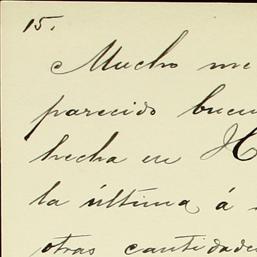 15.
Mucho me
parecido buen
hecha en H
la última á
otras cantidade